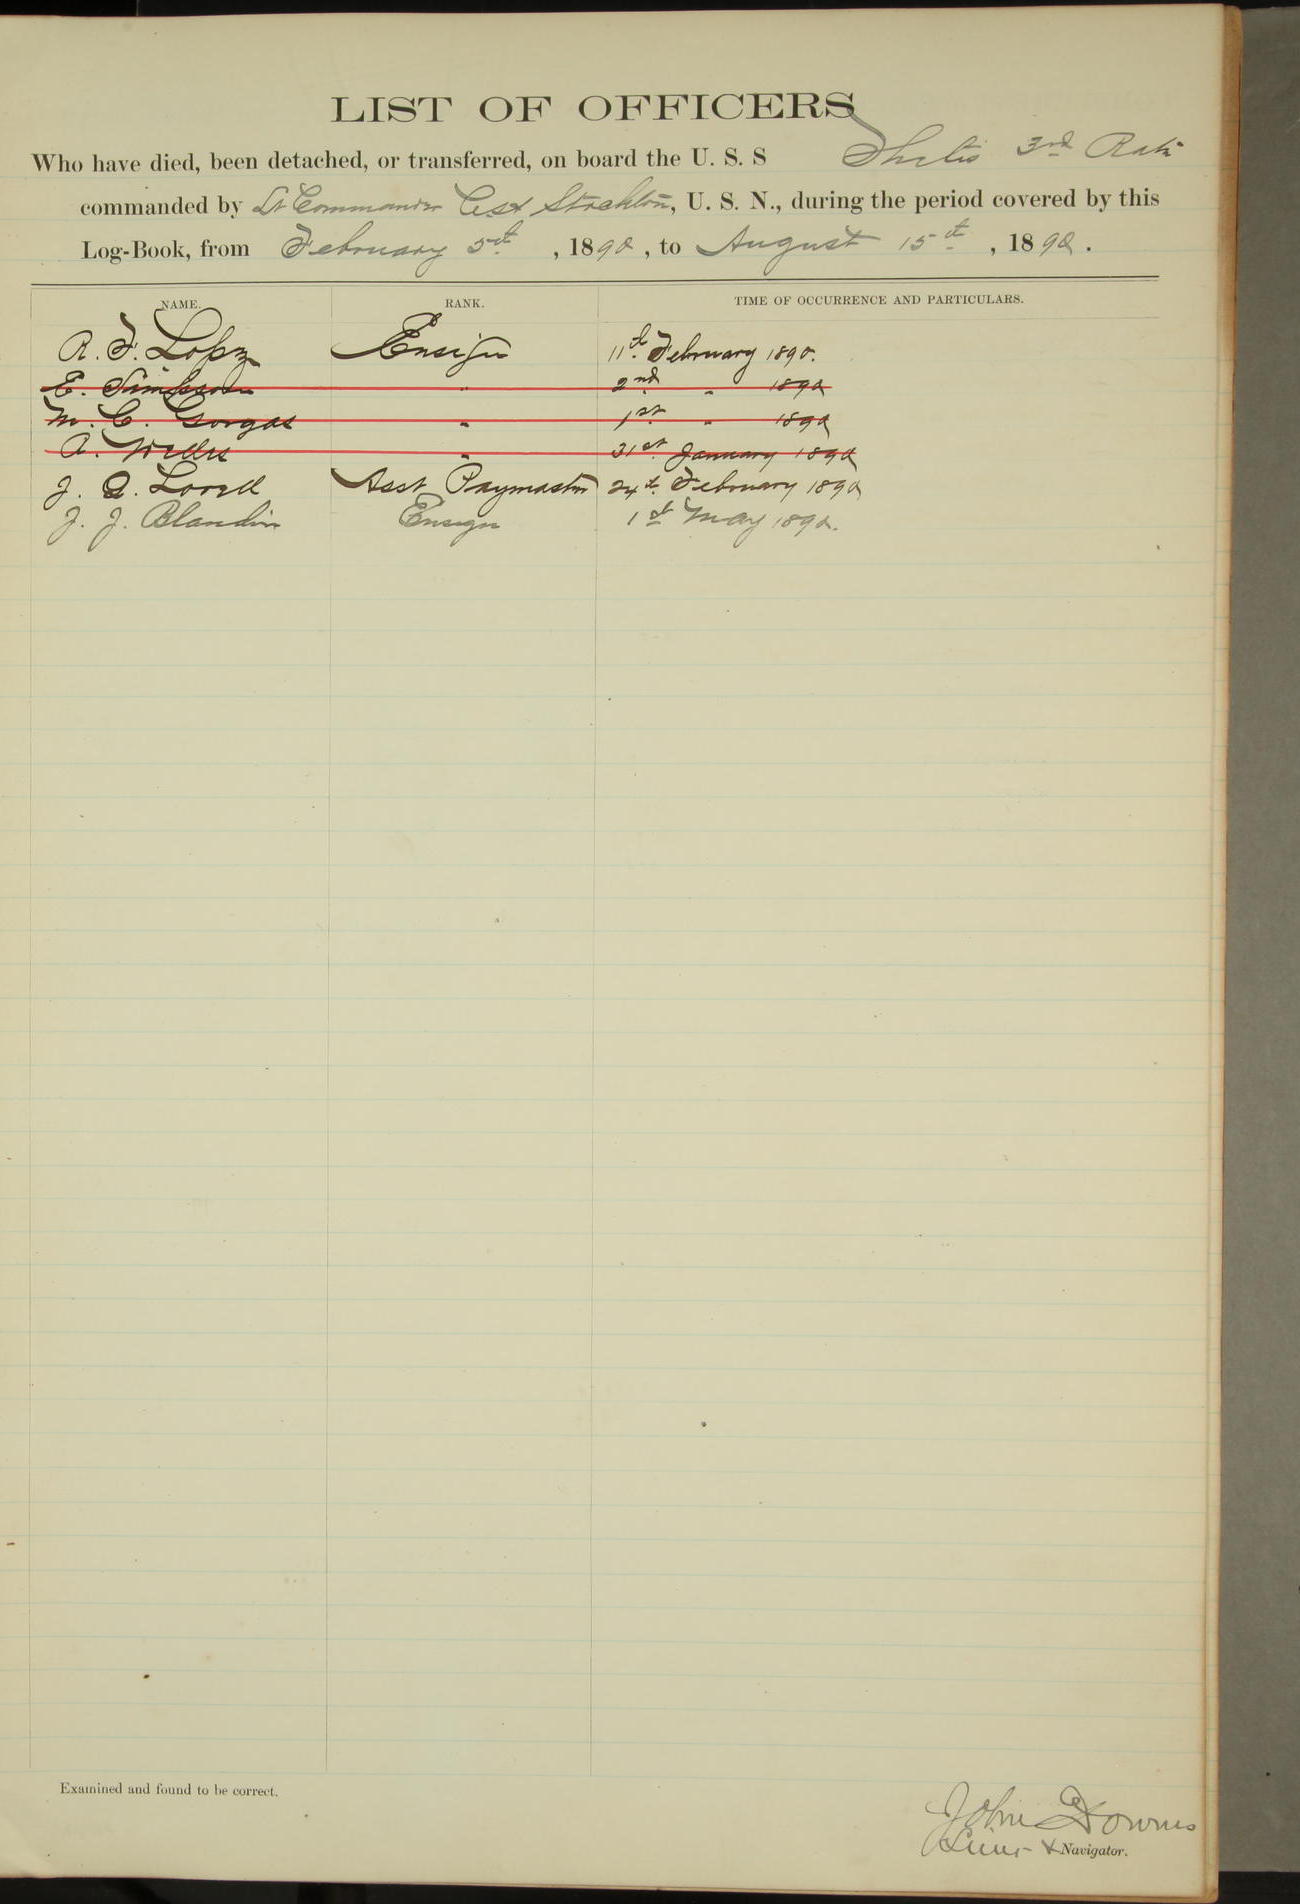 LIST OF OFFICERS
Who have died, been detached, or transferred, on board the U. S. S Thetis 3rd Rate
commanded by Lt Commander C. H. Stockton, U. S. N., during the period covered by this
Log-Book, from February 5th, 1890, to August 15th, 1890.
NAME. RANK. TIME OF OCCURRENCE AND PARTICULARS.
R. F. Lopez Ensign 11th February 1890.
E. Simpson " 2nd " 1890
M. C. Gorgas " 1st " 1890
A. Wells " 31st January 1890
J. S. Ensign Asst Paymaster 24th February 1890
J. J. Blandin Ensign 1st May 1890.
Examined and found to be correct.
John Downes
Lieut & Navigator.